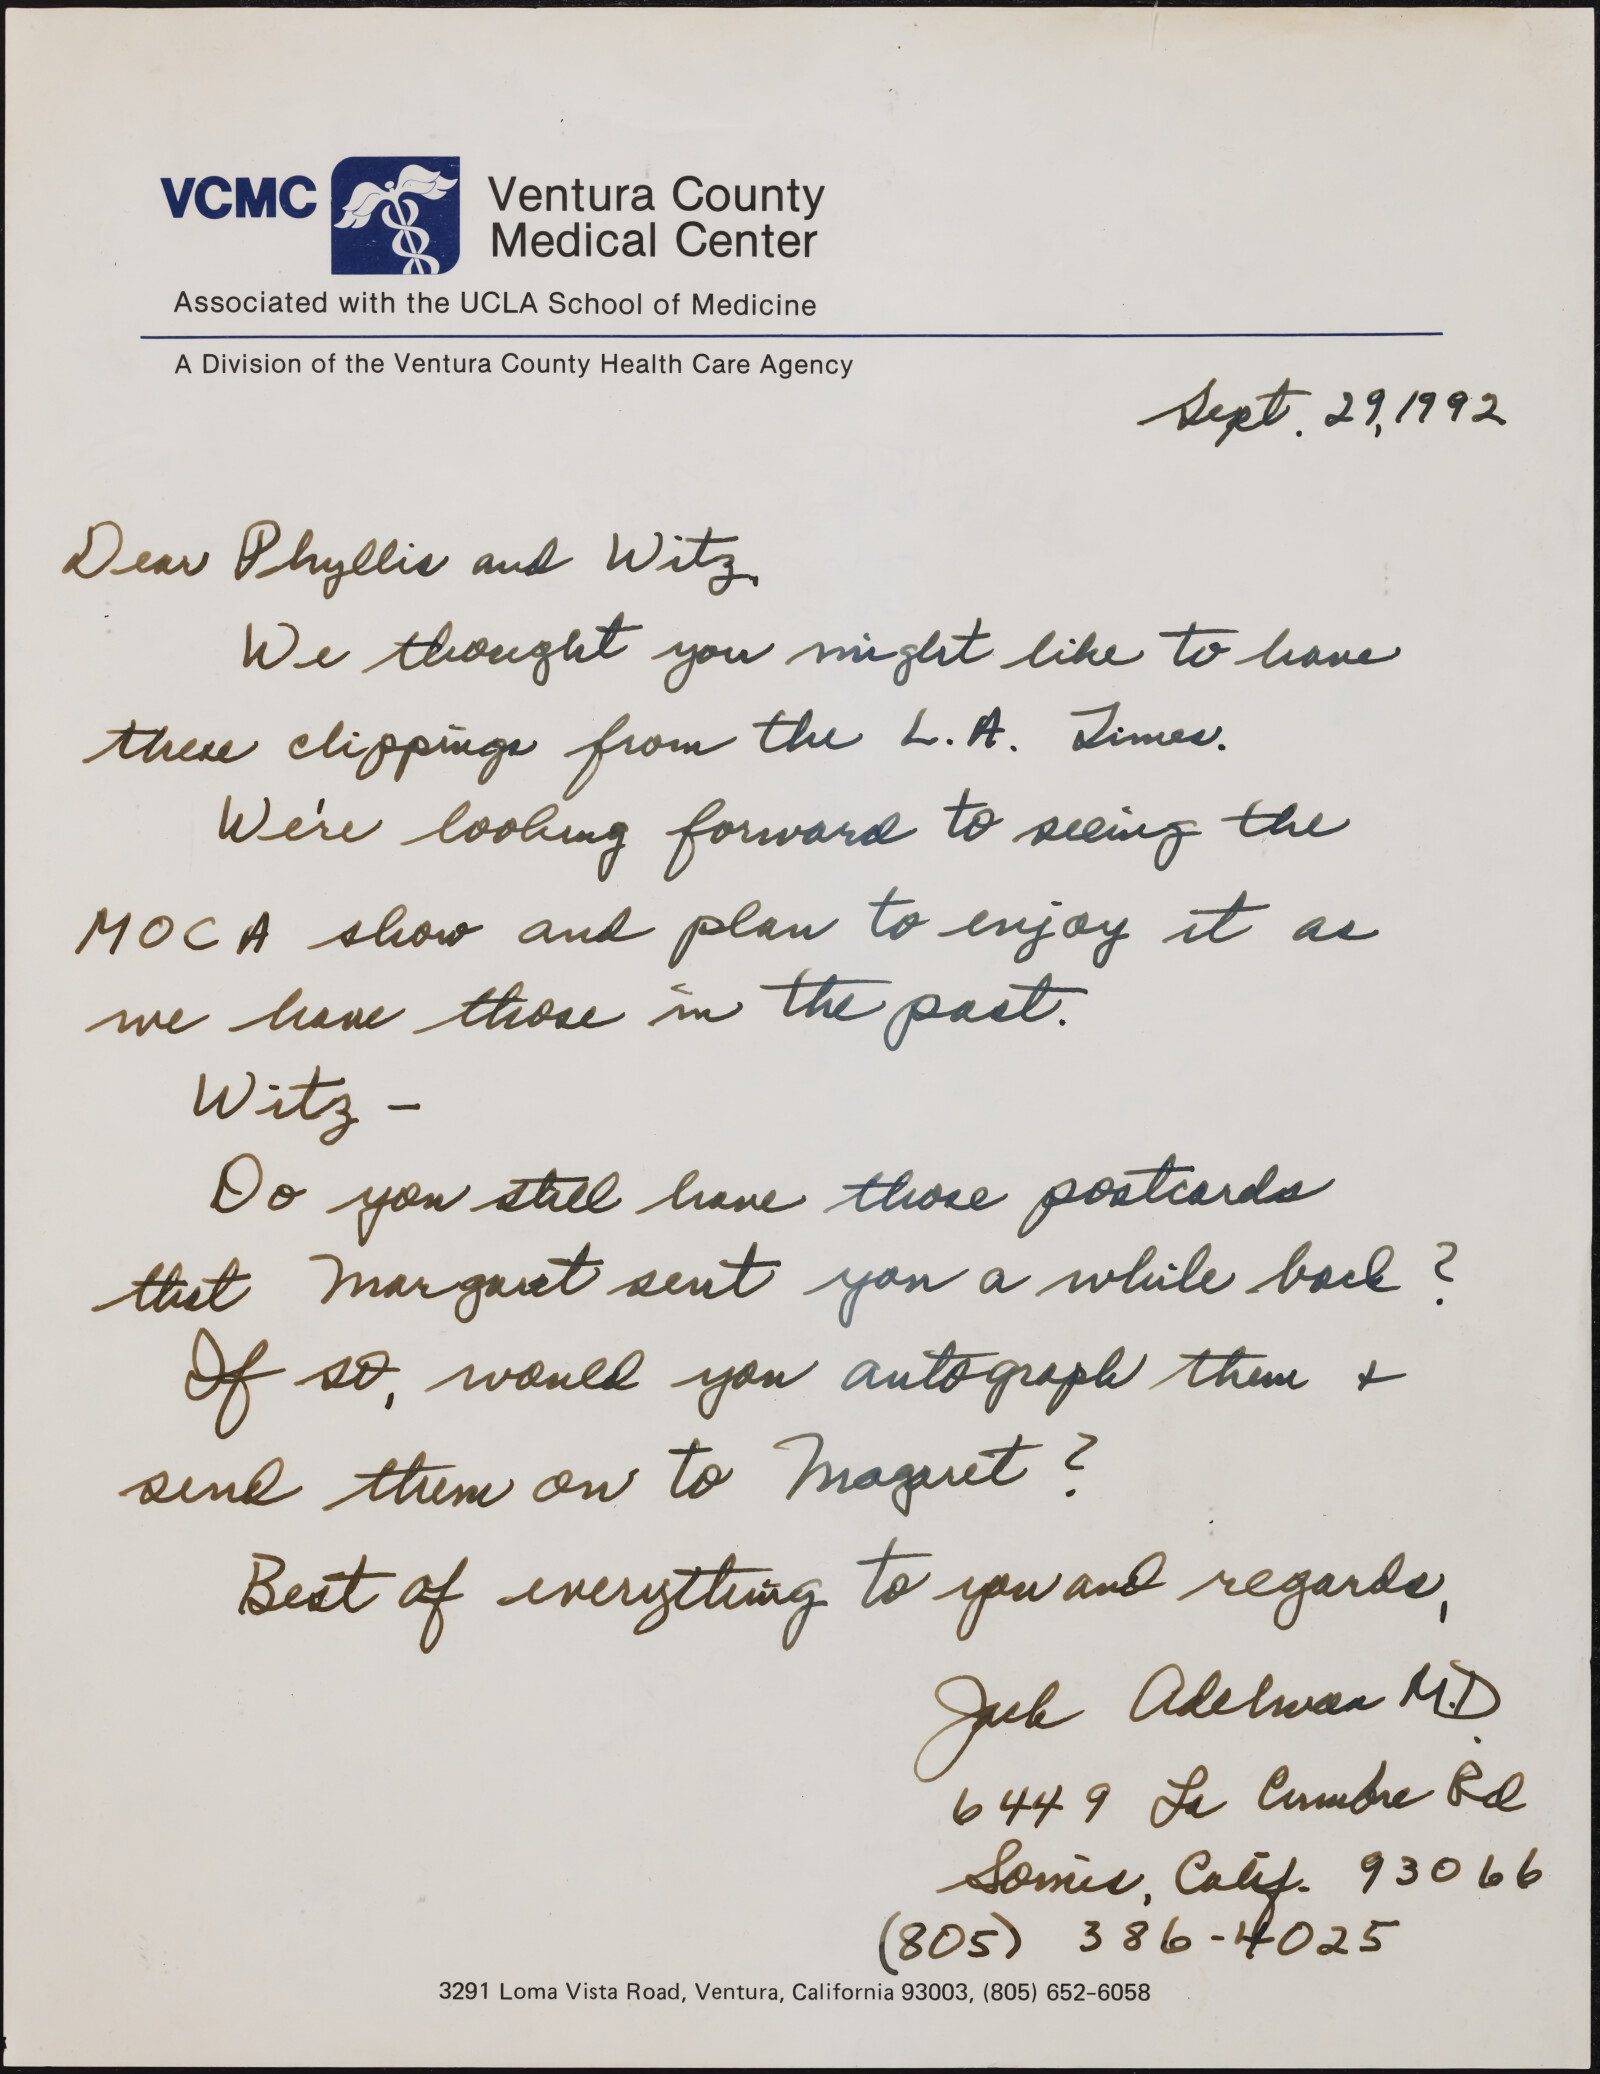 VCMC
Ventura County
Medical Center
Associated with the UCLA School of Medicine
A Division of the Ventura County Health Care Agency
Sept. 29, 1992
Dear Phyllis and Witz,
We thought you might like to have
these clippings from the L.A. Times.
We're looking forward to seeing the
MOCA show and plan to enjoy it as
we have those in the past.
Witz –
Do you still have those postcards
that Margaret sent you a while back?
If so, would you autograph them +
send them on to Magaret?
Best of everything to you and regards,
Jack Adelman M.D.
6449 La Cumbre Rd
Somis, Calif. 93066
(805) 386-4025
3291 Loma Vista Road, Ventura, California 93003, (805) 652-6058